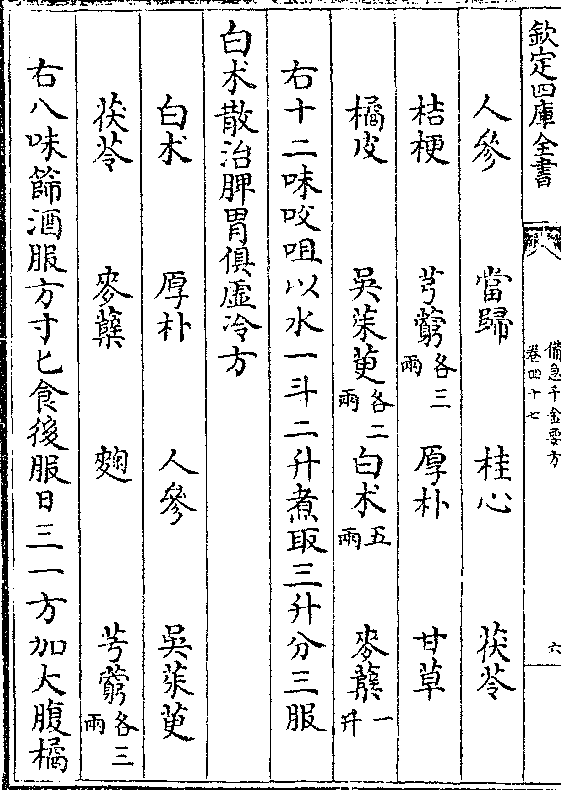 欽定四庫全書
備急千金要方
卷四十七
六
人參 當歸 桂心 茯苓
桔梗 芎藭各三兩 厚朴 甘草
橘皮 吳茱萸各二兩 白朮五兩 麥糵一升
右十二味㕮咀以水一斗二升煮取三升分三服
白朮散治脾胃俱虛冷方
白朮 厚朴 人參 吳茱萸
茯苓 麥糵 麴 芎藭各三兩
右八味篩酒服方寸匕食後服日三一方加大腹橘